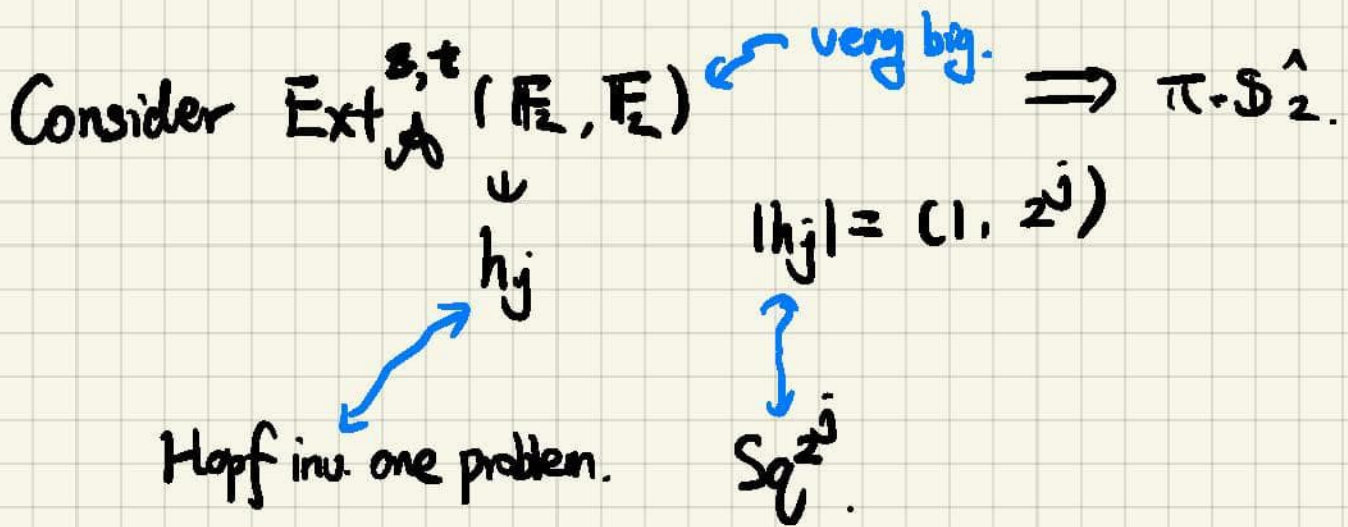 Consider Ext_A^{s,t} (F_2, F_2) very big. ⟹ π_* S^_2.
h_j |h_j| = (1, 2^j)
Hopf inv. one problem. Sq^{2^j}.